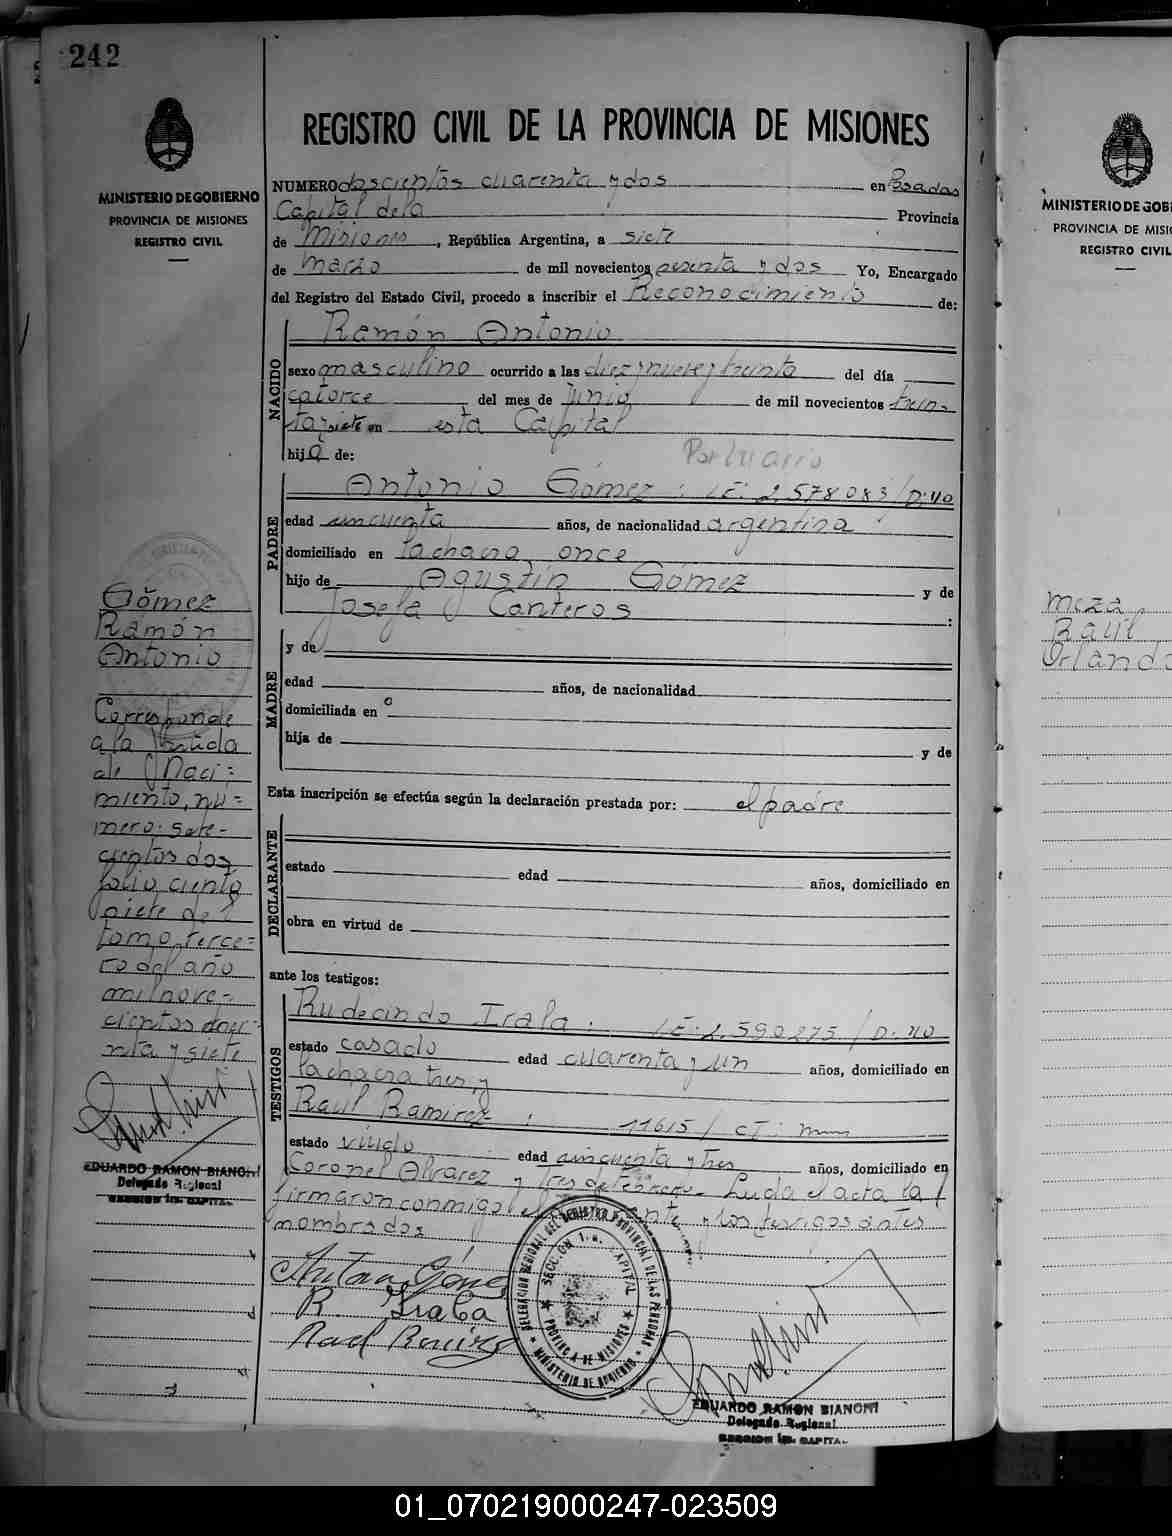 242
MINISTERIO DE GOBIERNO
PROVINCIA DE MISIONES
REGISTRO CIVIL
REGISTRO CIVIL DE LA PROVINCIA DE MISIONES
NUMERO doscientos cuarenta y dos en Posadas
Capital de la Provincia
de Misiones, República Argentina, a siete
de Marzo de mil novecientos sesenta y dos Yo, Encargado
del Registro del Estado Civil, procedo a inscribir el Reconocimiento de:
NACIDO
Ramón Antonio
sexo masculino ocurrido a las diez y nueve y treinta del día
catorce del mes de Junio de mil novecientos trein-
ta y siete en esta Capital
hijo de: Portuario
PADRE
Antonio Gómez : LE: 2.578.083/D:40
edad cincuenta años, de nacionalidad argentina
domiciliado en la chacra once
hijo de Agustín Gómez y de
Josefa Canteros :
MADRE
y de
edad años, de nacionalidad
domiciliada en
hija de y de
Esta inscripción se efectúa según la declaración prestada por: el padre
DECLARANTE
estado edad años, domiciliado en
obra en virtud de
ante los testigos:
TESTIGOS
Rudecindo Irala : LE: 2.590.275/D:40
estado casado edad cuarenta y un años, domiciliado en
la chacra tres, y
Raul Ramirez : 11615/CI:
estado viudo edad cincuenta y tres años, domiciliado en
Coronel Alvarez y tres de Febrero- Leida el acta la
firmaron conmigo el y los testigos antes
nombrados
Antonio Gómez
R Irala
Raul Ramirez
DELEGACION REGIONAL DEL REGISTRO PROVINCIAL DE LAS PERSONAS
SECCION 1a. CAPITAL
PROVINCIA DE MISIONES
MINISTERIO DE GOBIERNO
EDUARDO RAMON BIANCHI
Delegado Regional
SECCION 1a. CAPITAL
Gómez
Ramón
Antonio
Corresponde
a la Partida
de Naci-
miento, nú-
mero: sete-
cientos dos
folio ciento
siete del
tomo terce-
ro del año
mil nove-
cientos trein-
ta y siete
EDUARDO RAMON BIANCHI
Delegado Regional
SECCION 1a. CAPITAL
MINISTERIO DE GOBI
PROVINCIA DE MISIO
REGISTRO CIVIL
Meza
Raúl
Orlando
01_070219000247-023509